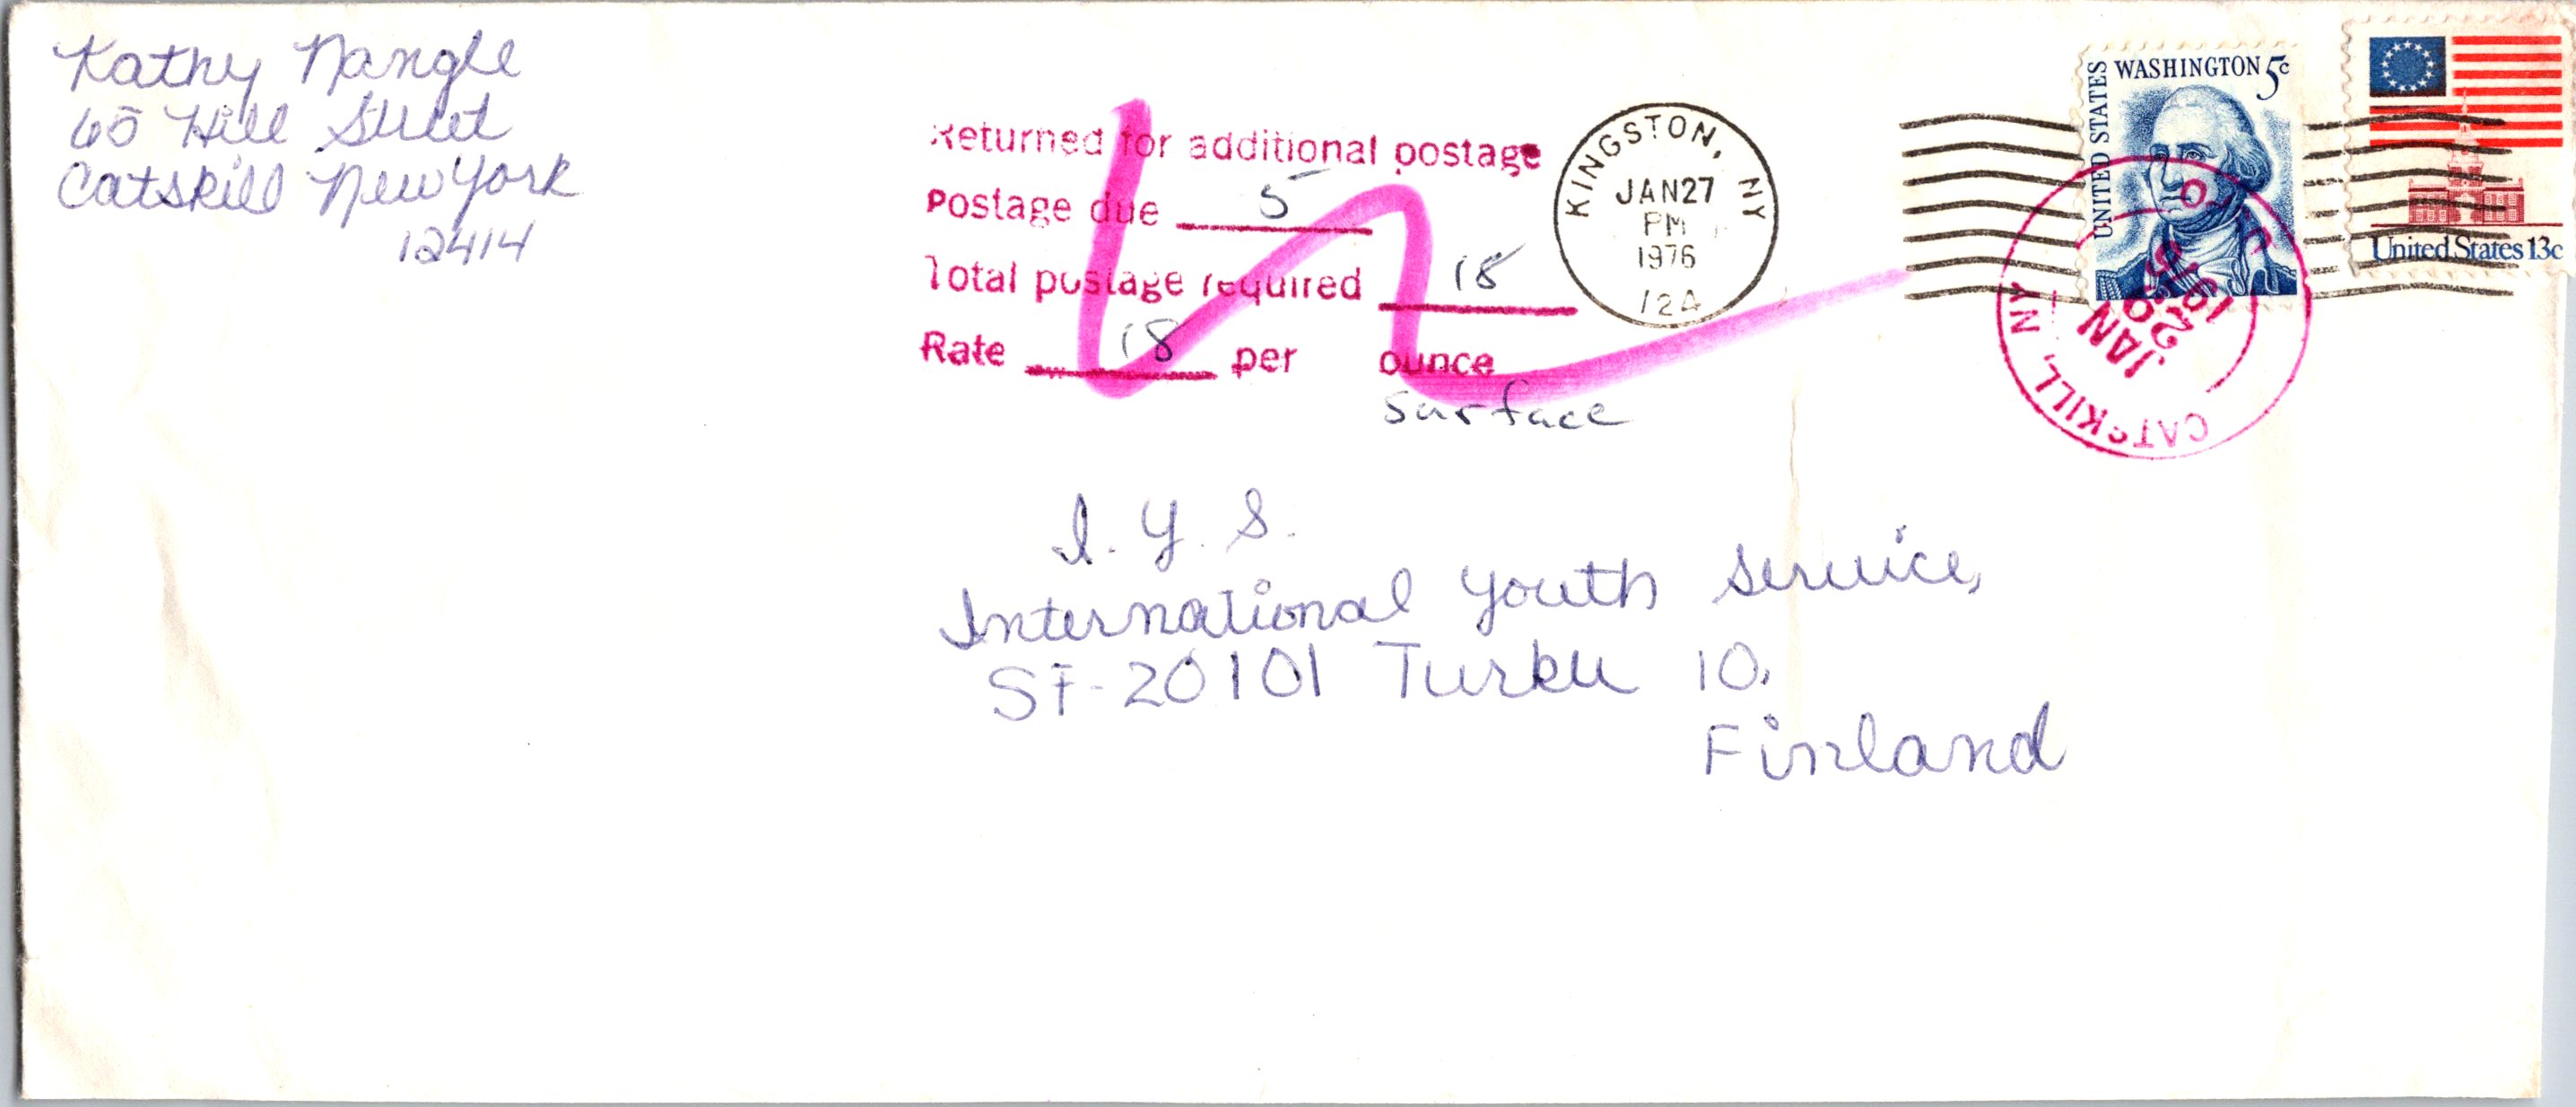 Kathy Nangle
65 Hill Street
Catskill New York
12414
Returned for additional postage
Postage due 5
Total postage required 18
Rate 18 per ounce
surface
KINGSTON, NY
JAN 27
PM
1976
124
UNITED STATES
WASHINGTON 5c
United States 13c
CATSKILL, NY
JAN
1976
I. Y. S.
International Youth Service,
SF-20101 Turku 10.
Finland